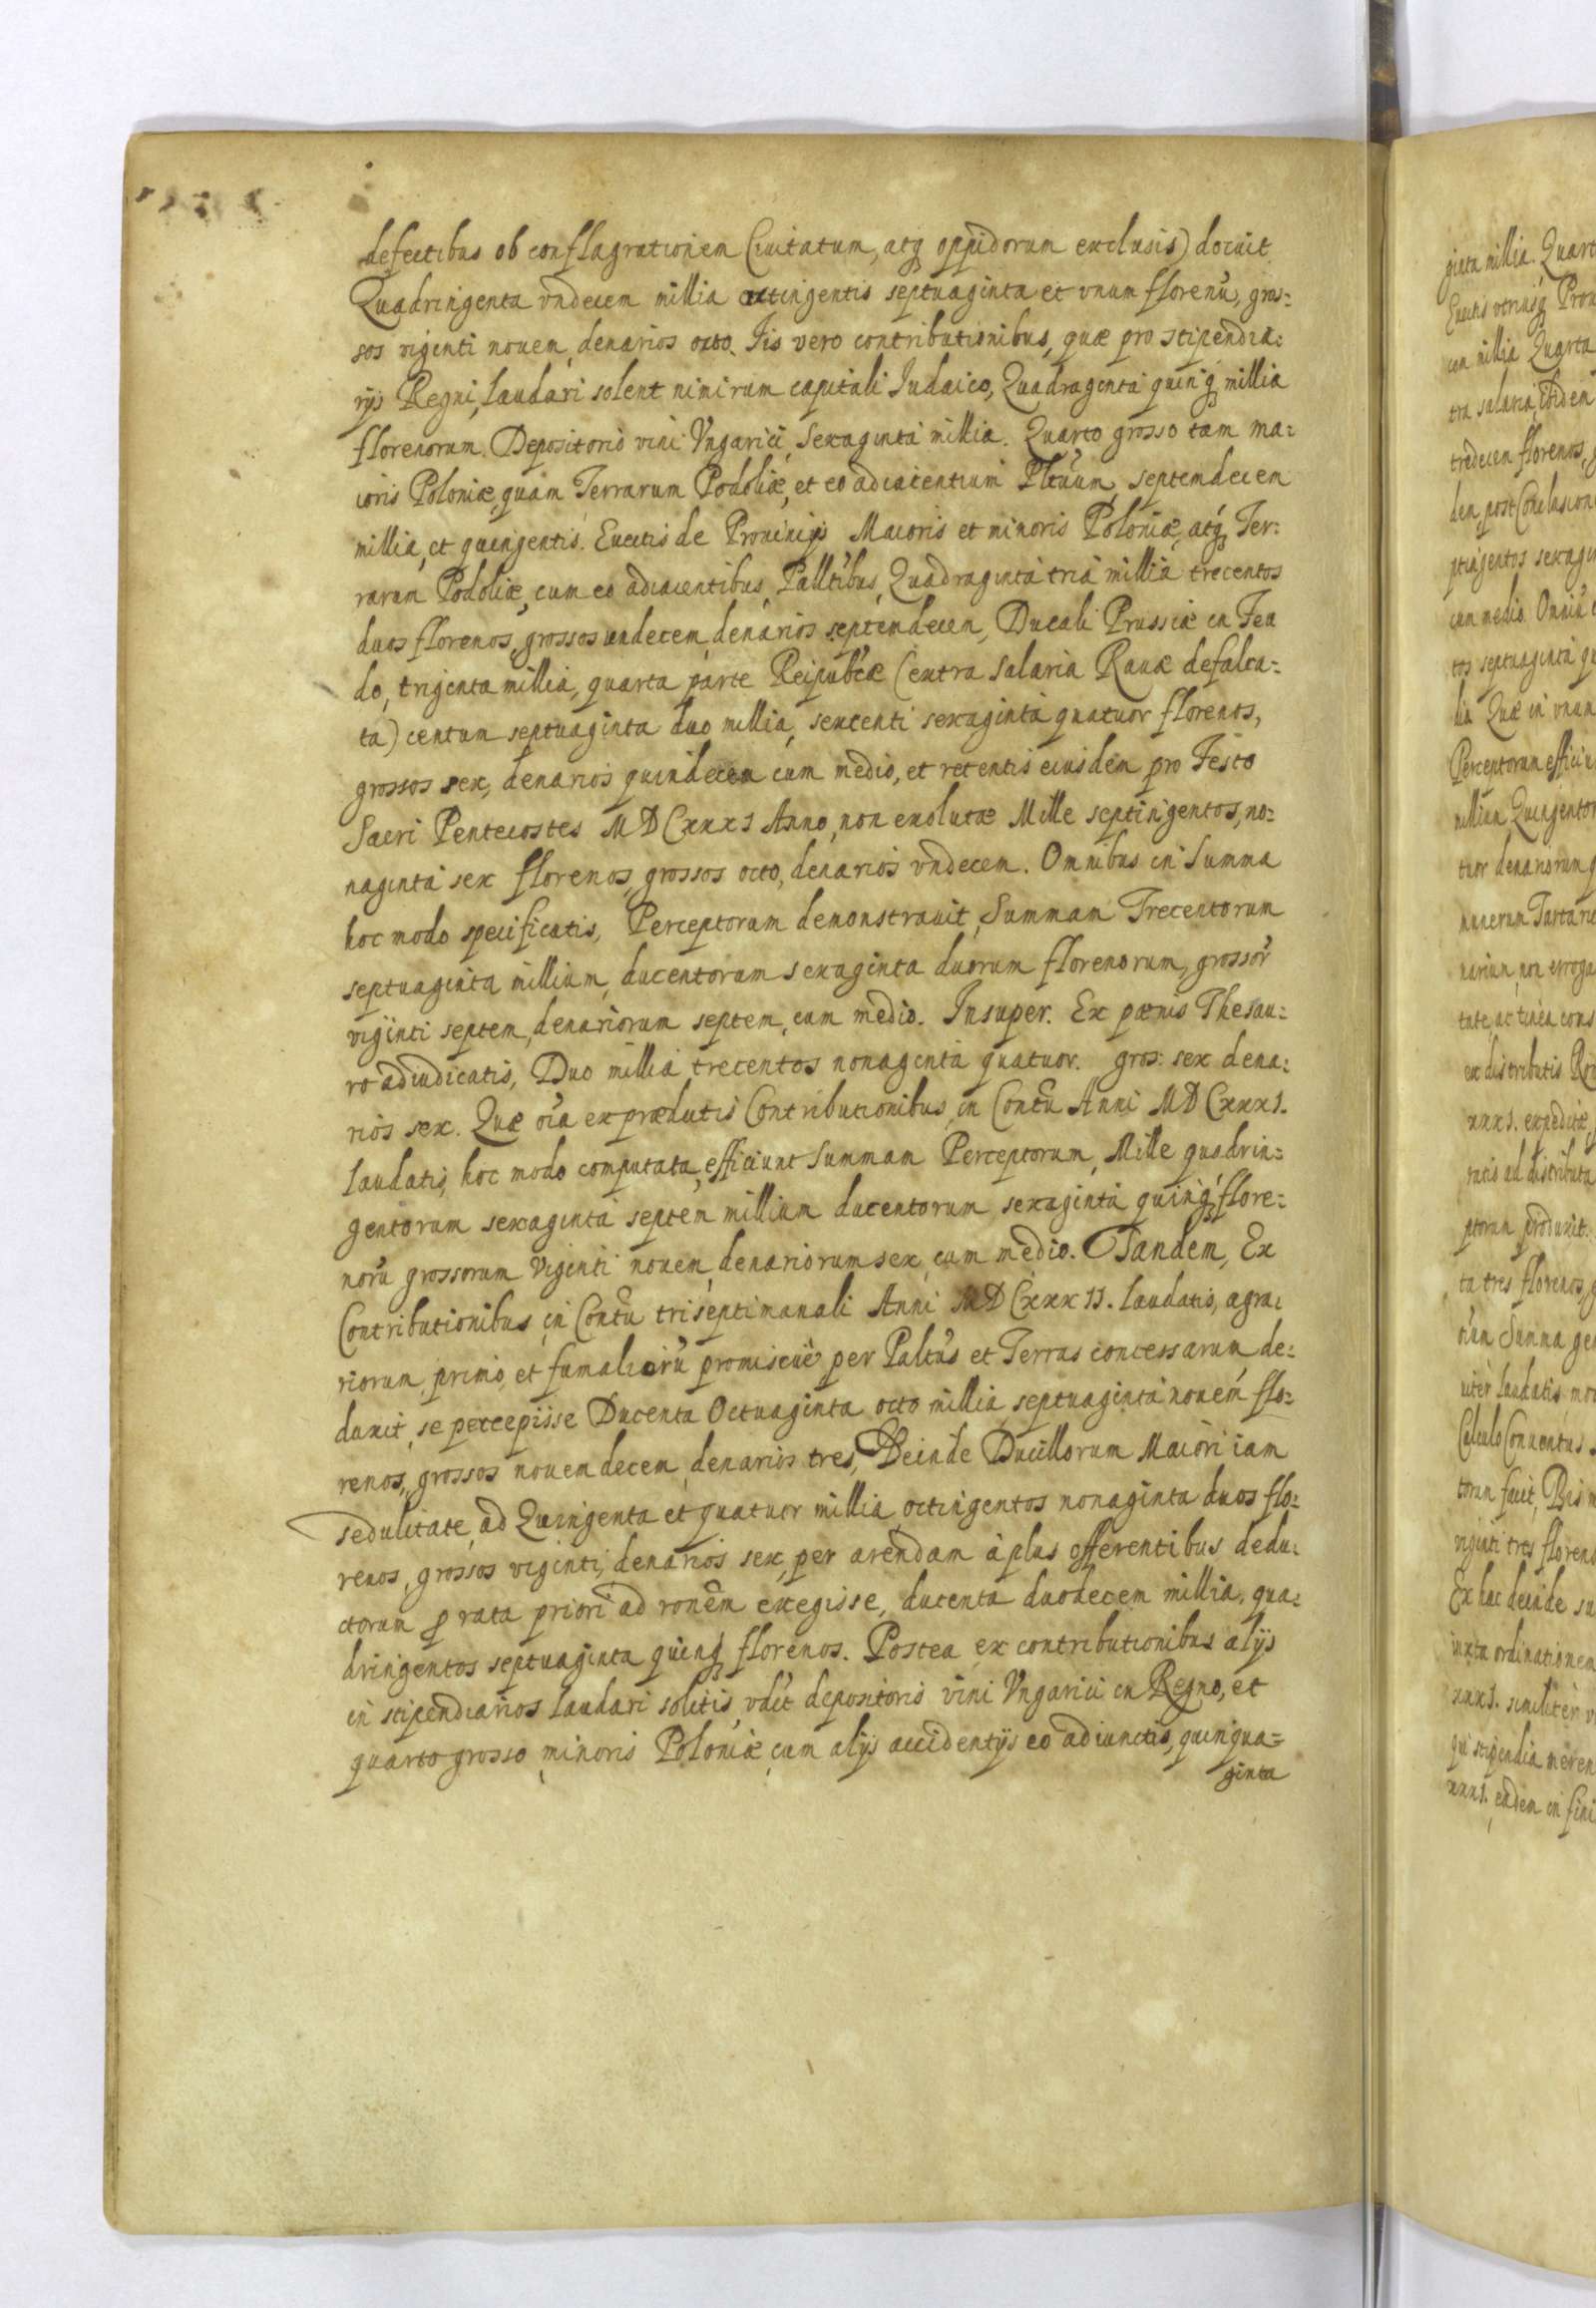 defectibus ob conflagrationem Ciuitatum, atq oppidorum exclusis) docuit
Quadringenta vndecem millia octingentis septuaginta et vnum florenú, gros=
sos viginti nouem, denarios octo. Iis vero contributionibus, quæ pro stipendia=
rijs Regni, laudari solent nimirum capitali Iudaico, Quadraginta quinq millia
florenorum. Depositorio vini Vngarici, Sexaginta millia. Quarto grosso tam ma=
ioris Poloniæ, quam Terrarum Podoliæ, et eo adiacentium Pltúum, septemdecem
millia, et quingentis. Euectis de Prouincijs Maioris et minoris Poloniæ, atq Ter=
rarum Podoliæ, cum eo adiacentibus, Palltibus, Quadraginta tria millia trecentos
duos florenos, grossos undecem, denarios septemdecem, Ducali Prussiæ in Feu
do, triginta millia, quarta parte Reipubcæ (extra Salaria Rauæ defalca=
ta) centum septuaginta duo millia, sexcenti sexaginta quatuor florenos,
grossos sex, denarios quindecem cum medio, et retentis eiusdem pro Festo
Sacri Pentecostes MDCxxxI Anno, non exolutæ Mille septingentos, no=
naginta sex florenos, grossos octo, denarios vndecem. Omnibus in Summa
hoc modo specificatis, Perceptorum demonstrauit, Summam Trecentorum
septuaginta millium, ducentorum sexaginta duorum florenorum, grossor
viginti septem, denariorum septem, cum medio. Insuper. Ex pœnis Thesau=
ro adiudicatis, Duo millia trecentos nonaginta quatuor. gros: sex dena=
rios sex. Quæ oia ex prædictis Contributionibus, in Contu Anni MDCxxxI.
laudatis, hoc modo computata, efficiunt Summam Perceptorum, Mille quadrin=
gentorum sexaginta septem millium ducentorum sexaginta quinq flore=
norú grossorum Viginti nouem, denariorum sex, cum medio. Tandem, Ex
Contributionibus, in Contu triseptimanali Anni MDCxxxII. laudatis, agra=
riorum primo, et fumaliorú promiscuè per Paltus et Terras concessarum, de=
duxit, se percepisse Ducenta Octuaginta octo millia, septuaginta nouem flo=
renos, grossos nouemdecem, denarios tres, Deinde Ducillorum Maiori iam
sedulitate, ad Quingenta et quatuor millia, octingentos nonaginta duos flo=
renos, grossos viginti, denarios sex, per arendam à plus offerentibus dedu=
ctorum ꝓ rata priori ad ronem exegisse, ducenta duodecem millia, qua=
dringentos septuaginta quinq florenos. Postea, ex contributionibus alijs
in stipendiarios laudari solitis, vdct depositoris vini Vngarici in Regno, et
quarto grosso minoris Poloniæ, cum alijs accidentijs eo adiunctis, quinqua=
ginta